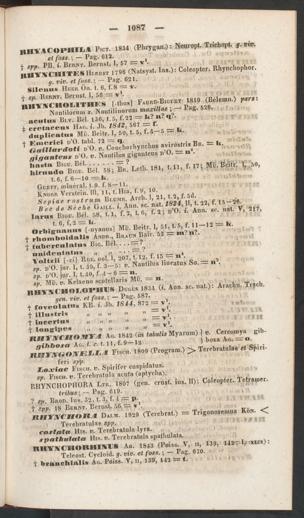 — 1087 —
RHYACOPHILA Pict. 1834 (Phrygan.): Neuropt. Trichopt. g. viv.
et foss.; — Pag. 612.
† spp. PB. i. Bernt. Bernst. I, 57 = v¹.
RHYNCHITES Herbst 1796 (Natsyst. Ins.): Coleopter. Rhynchophor.
g. viv. et foss.; — Pag. 621.
Silenus Heer On. 1. 6, f. 8 = v.
† sp. Bernt. Bernst. I, 56 = v¹.
RHYNCHOLITHES [-thos] Faure-Biguet 1819 (Bélemn.) pars:
Nautilinorum s. Nautilinorum maxillae; — Pag. 526.
acutus Blv. Bél. 136, t. 5, f. 22 = k? n? q?.
‡ cretaceus Hag. i. Jb. 1842, 567 = f.
duplicatus Mü. Beitr. I, 50, t. 5, f. 4-5 = k.
† Emerici d'O. tabl. 72 = q.
Gaillardoti d'O. c. Conchorhynchus avirostris Br. = k.
giganteus d'O. v. Nautilus giganteus d'O. = n⁴.
hasta Bigu. Bél. . . . . = ?
hirundo Bigu. Bél. 58; Br. Leth. 181, t. 11, f. 17; Mü. Beitr. I, 50,
t. 6, f. 6-10 = k.
Gletf. mineral. t. 9. f. 8-11.
Knorr Verstein. II, 11, t. H 1a, f. 9, 10.
Sepiae rostrum Blumb. Arch. I, 21, t. 2, f. 5d.
Bec de Sèche Gaill. i. Ann. sc. nat. 1824, II, t. 22, f. 15-24.
larus Bigu. Bél. 58, t. 1, f. 2, t. 6, f. 2; d'O. i. Ann. sc. nat. V, 217,
t. 6, f. 3 = k.
Orbignanus (-nyanus) Mü. Beitr. I, 51, t. 5, f. 11-12 = k.
† rhomboidalis Andr., Braun Bair. 53 = m? n?.
† tuberculatus Big. Bél. . . . = ?
unidentatus . . . . = ?
Voltzii (-zi) Roe. ool. I, 207, t. 12, f. 15 = n⁵.
RHYNCHOLOPHUS Dugès 1834 (i. Ann. sc. nat.): Arachn. Trach.
gen. viv. et foss.; — Pag. 587.
† foveolatus KB. i. Jb. 1844, 872 = v¹.
† illustris „ „ „ „ = v¹.
† incertus „ „ „ „ = v¹.
† longipes „ „ „ „ = v¹.
gibbosa Ag. c. t. 11, f. 9-12
RHYNGONELLA Fisch. 1809 (Program.) > Terebratulae et Spiri-
feri spp.
Loxiae Fisch. v. Spirifer cuspidatus.
sp. Fisch. v. Terebratula acuta (aptycha).
RHYNCHOPHORA Ltr. 1807 (gen. crust. ins. II): Coleopter. Tetramer.
tribus; — Pag. 619.
RHYNCHORA Dalm. 1828 (Terebrat.) = Trigonosemus Kön. <
Terebratulae spp.
costata His. v. Terebratula lyra.
spathulata His. v. Terebratula spathulata.
RHYNCHORHINUS Ag. 1843 (Poiss. V, II, 139, 142
Teleost. Cycloid. g. viv. et foss.; — Pag. 670.
† branchialis Ag. Poiss. V, II, 139, 142 = t.